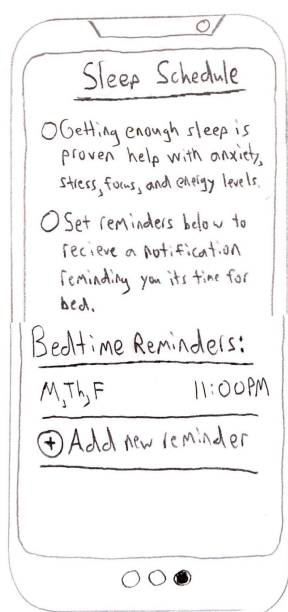 Sleep Schedule
Getting enough sleep is
proven help with anxiety,
stress, focus, and energy levels.
Set reminders below to
recieve a notification
reminding you its time for
bed.
Bedtime Reminders:
M, Th, F 11:00PM
+ Add new reminder